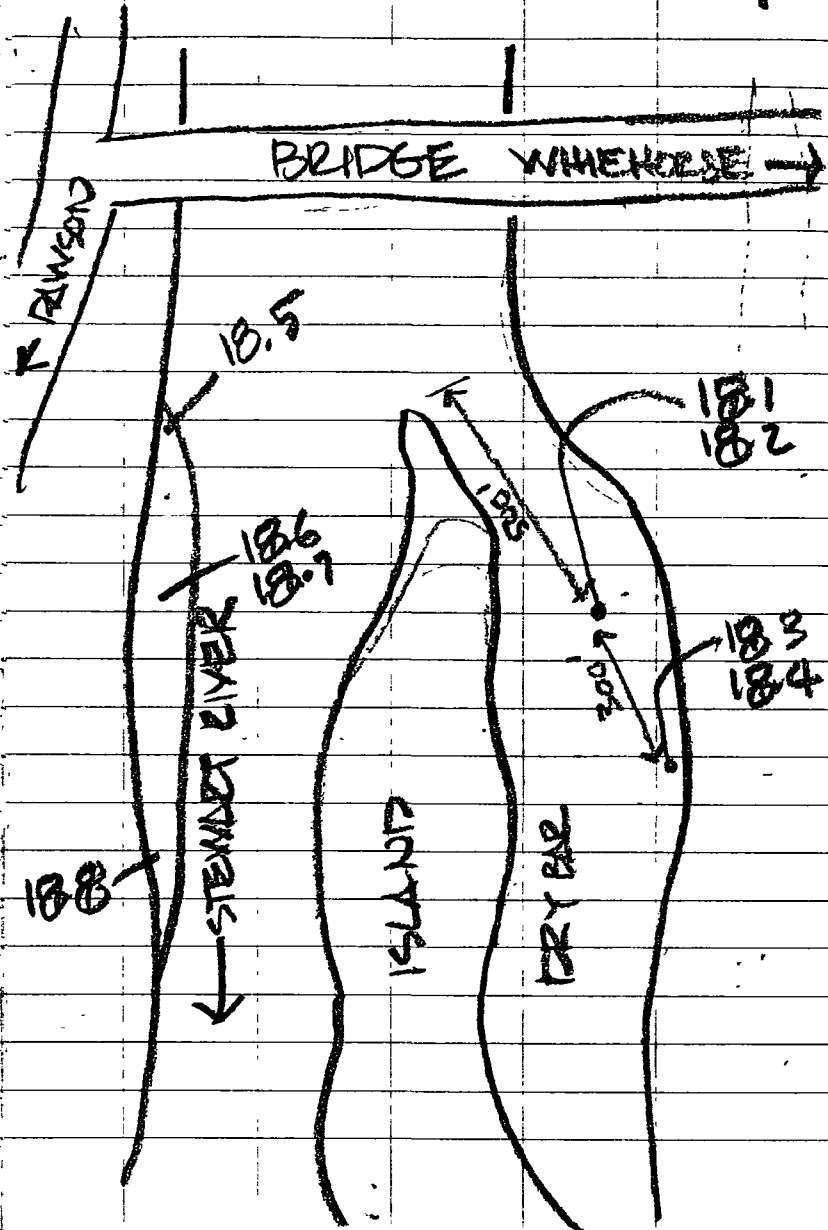 BRIDGE WHITEHORSE →
DAWSON
18.5
18.1
18.2
18.6
18.7
18.3
18.4
300'
STEWART RIVER
ISLAND
DRY BAR
18.8